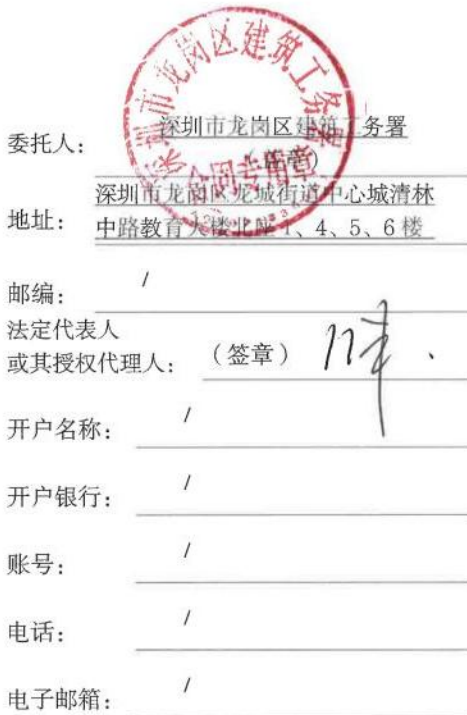 深圳市龙岗区建筑工务署
合同专用章
委托人： 深圳市龙岗区建筑工务署
（盖章）
地址： 深圳市龙岗区龙城街道中心城清林
中路教育大楼北座1、4、5、6楼
邮编： /
法定代表人
或其授权代理人： （签章）
开户名称： /
开户银行： /
账号： /
电话： /
电子邮箱： /